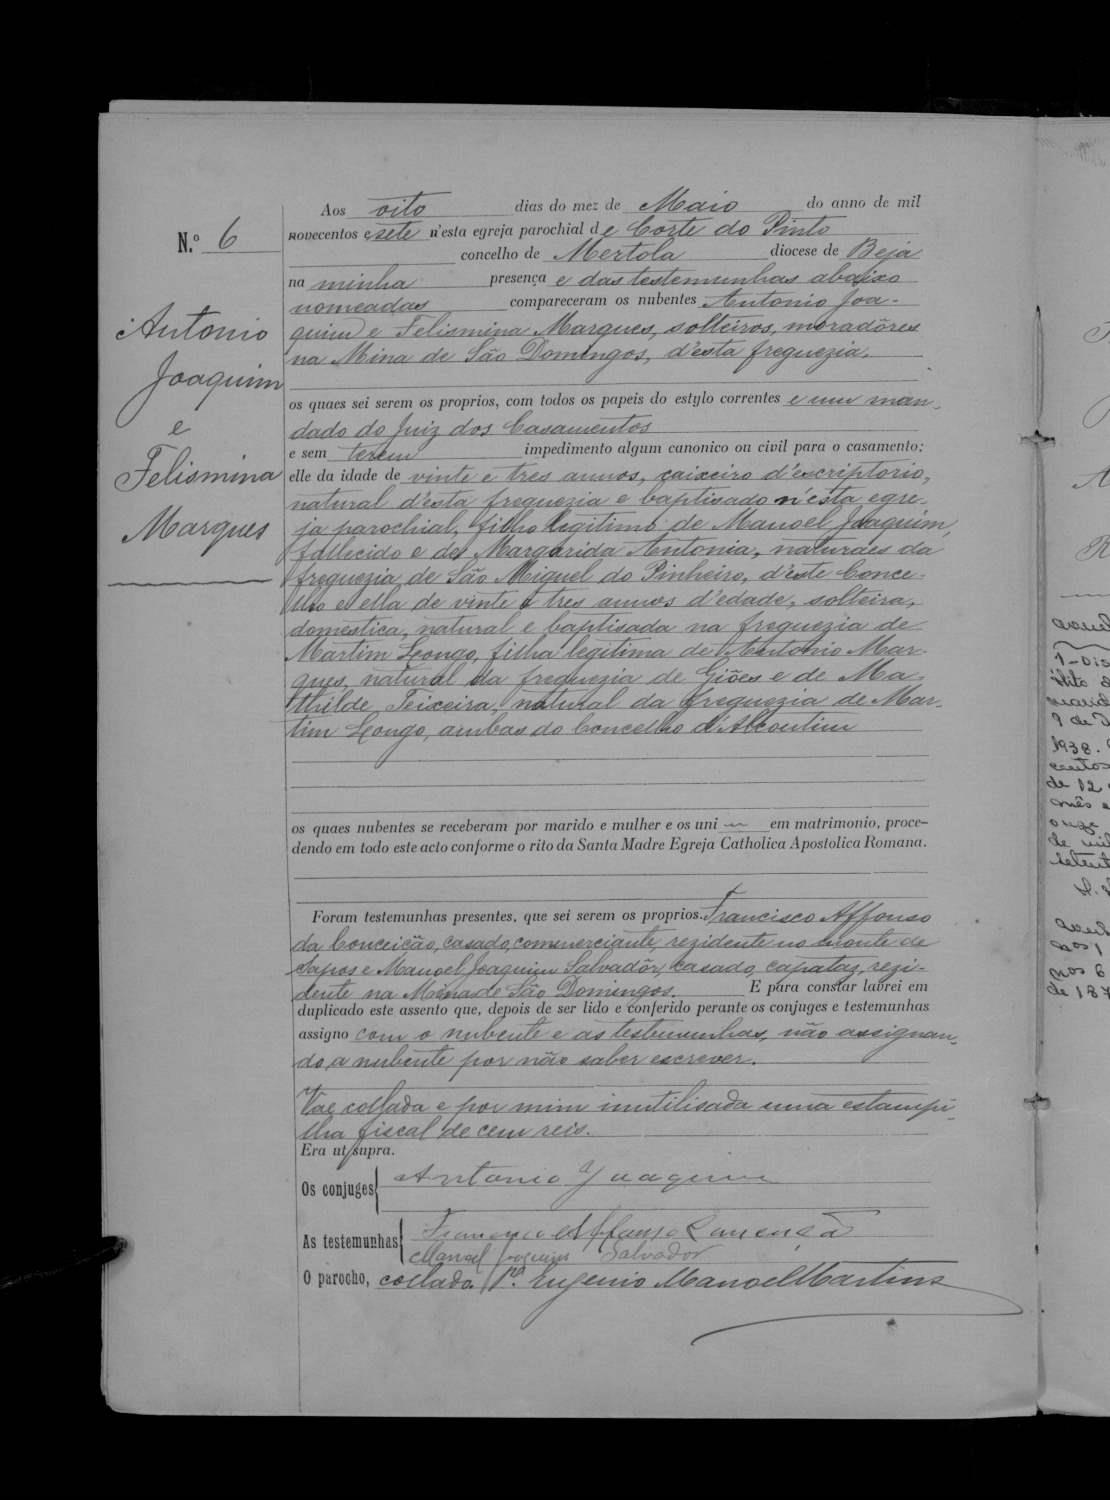 N.º 6
Antonio
Joaquim
e
Felismina
Marques
Aos oito dias do mez de Maio do anno de mil
novecentos e sete n'esta egreja parochial de Corte do Pinto
concelho de Mertola diocese de Beja
na minha presença e das testemunhas abaixo
nomeadas compareceram os nubentes Antonio Joa-
quim e Felismina Marques, solteiros, moradôres
na Mina de São Domingos, d'esta freguezia.
os quaes sei serem os proprios, com todos os papeis do estylo correntes e um man-
dado do Juiz dos Casamentos
e sem terem impedimento algum canonico ou civil para o casamento;
elle da idade de vinte e tres annos, caixeiro d'escriptorio,
natural d'esta freguezia e baptisado n'esta egre-
ja parochial, filho legitimo de Manoel Joaquim,
fallecido e de Margarida Antonia, naturaes da
freguezia de São Miguel do Pinheiro, d'este Conce-
lho e ella de vinte e tres annos d'edade, solteira,
domestica, natural e baptisada na freguezia de
Martim Longo, filha legitima de Antonio Mar-
ques, natural da freguezia de Giões e de Ma-
thilde Teixeira, natural da freguezia de Mar-
tim Longo, ambas do Concelho d'Alcoutim
os quaes nubentes se receberam por marido e mulher e os uni em matrimonio, proce-
dendo em todo este acto conforme o rito da Santa Madre Egreja Catholica Apostolica Romana.
Foram testemunhas presentes, que sei serem os proprios. Francisco Affonso
da Conceição, casado, commerciante, rezidente no monte de
Sapos e Manoel Joaquim Salvadôr, casado, capataz, rezi-
dente na Mina de São Domingos. E para constar lavrei em
duplicado este assento que, depois de ser lido e conferido perante os conjuges e testemunhas
assigno com o nubente e as testemunhas, não assignan-
do, a nubente por não saber escrever.
Vae collada e por mim inutilisada uma estampi-
lha fiscal de cem reis.
Era ut supra.
Os conjuges Antonio Joaquim
As testemunhas Francisco Affonso Conceição
Manoel Joaquim Salvador
O parocho, collado, P.e Eugenio Manoel Martins
1938.
de 12
mês
onze
de mil
nos 6
de 187